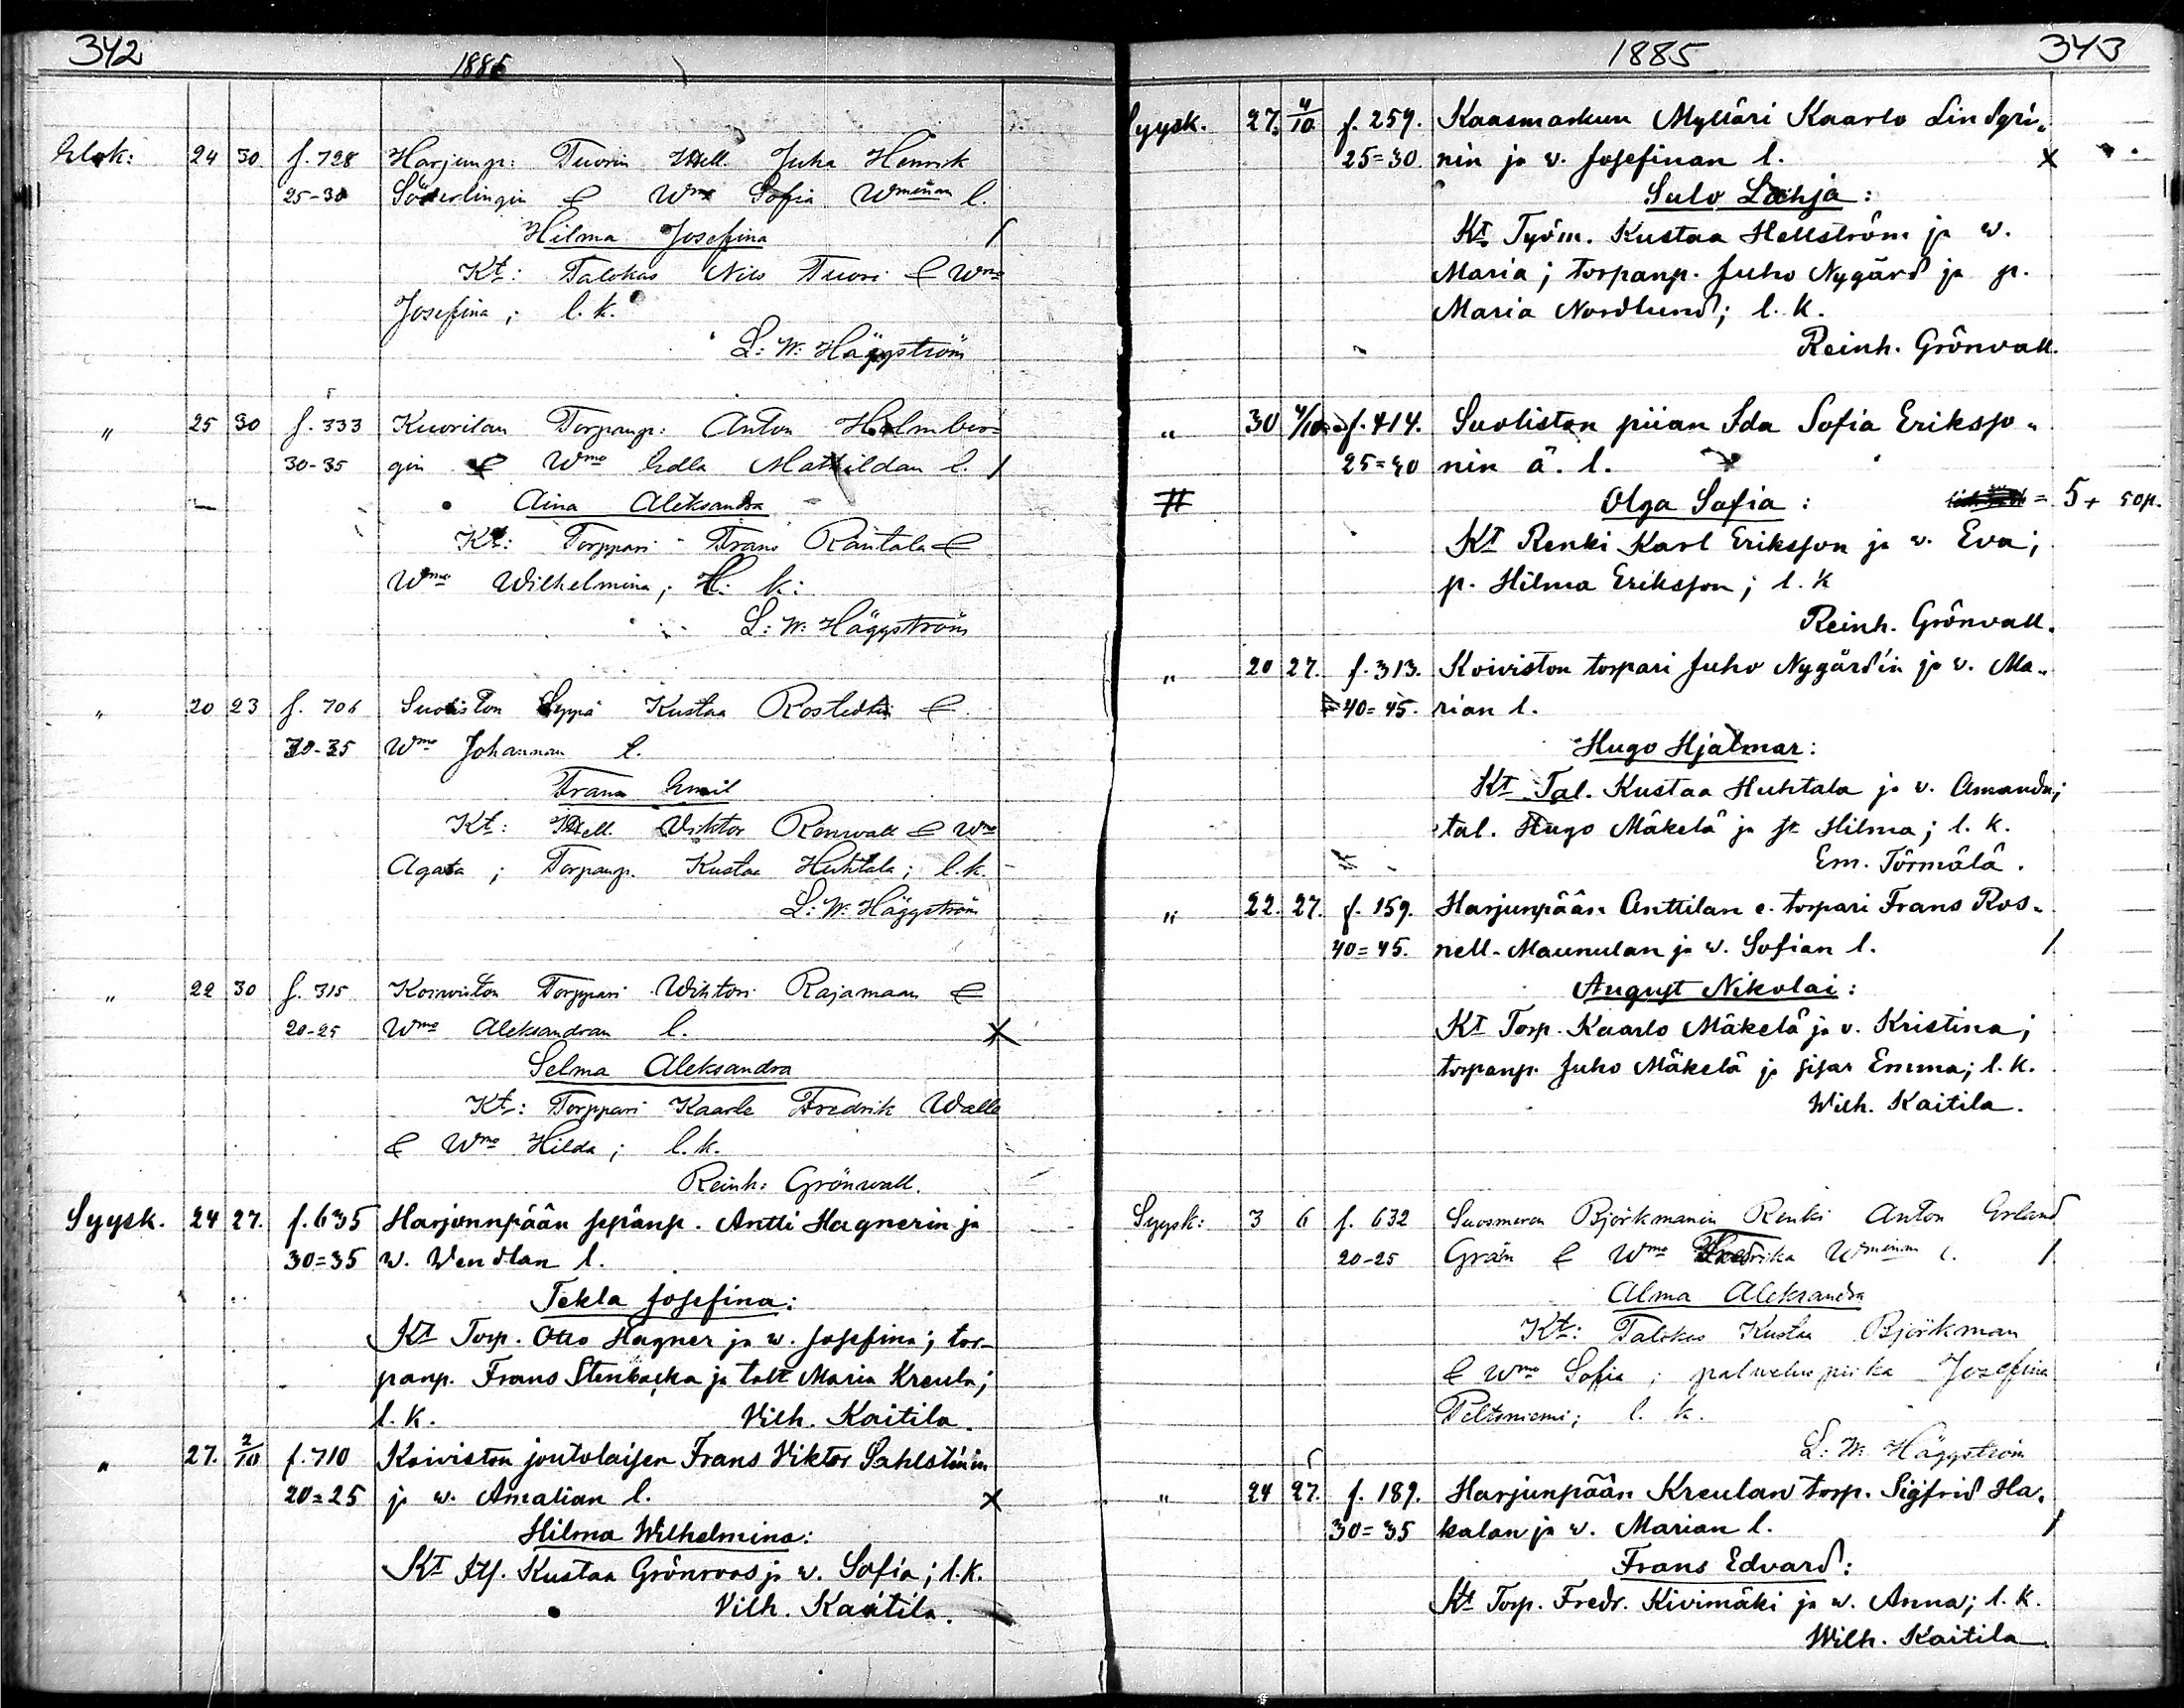 342
1885
Elok: 24 30 f. 728 Harjunp: Tuorin Itsell. Juha Henrik
25-30 Söderlingin & Wmo Sofia Wminan l.
Hilma Josefina /
Kt: Talokas Nilo Tuori & Wmo
Josefina; l. k.
L: W: Häggström
" 25 30 f. 333 Kuorilan Torpanp: Anton Holmber=
30-35 gin & Wmo Edla Matildan l. /
Aina Aleksandra
Kt: Torppari Frans Rantala &
Wmo Wilhelmina; l. k:
L: W: Häggström
" 20 23 f. 706 Suoliston Seppä Kustaa Rostedtin &
30-35 Wmo Johannan l.
Frans Emil
Kt: Itsell. Viktor Renwall & Wmo
Agata; Torpanp. Kustaa Huhtala; l.k.
L: W: Häggström
" 22 30 f. 315 Koiwiston Torppari Wihtori Rajamaan &
20-25 Wmo Aleksandran l. X
Selma Aleksandra
Kt: Torppari Kaarle Fredrik Walle
& Wmo Hilda; l.k.
Reinh: Grönwall.
Syysk. 24 27. f. 635 Harjunnpään sepänp. Antti Hagnerin ja
30=35 w. Wendlan l.
Tekla Josefina:
Kt Torp. Otto Hagner ja w. Josefina; tor-
panp. Frans Stenbacka ja talt Maria Kreula;
l. k. Vilh. Kaitila.
" 27. 2/10 f. 710 Koiviston joutolaisen Frans Viktor Sahlstéinin
20=25 ja w. Amalian l. X
Hilma Wilhelmina:
Kt Its. Kustaa Grönroos ja w. Sofia; l.k.
Vilh. Kaitila.
1885 343
Syysk. 27. 4/10 f. 259. Kaasmarkun Mylläri Kaarlo Lindgri„
25=30. nin ja w. Josefinan l. X
Sulo Lahja:
Kt Työm. Kustaa Hellström ja w.
Maria; torpanp. Juho Nygård ja p.
Maria Nordlund; l. k.
Reinh. Grönvall.
" 30 4/10 f. 414. Suoliston piian Ida Sofia Eriksso„
25=40 nin ä. l.
# Olga Sofia: = 5+ 50p.
Kt Renki Karl Eriksson ja w. Eva;
p. Hilma Eriksson; l. k
Reinh. Grönvall.
" 20 27. f. 313. Koiviston torpari Juho Nygårdin ja v. Ma„
40=45. rian l.
Hugo Hjalmar:
Kt Tal. Kustaa Huhtala ja v. Amanda;
tal. Hugo Mäkelä ja Hilma; l. k.
Em. Törmälä.
" 22. 27. f. 159. Harjunpään Anttilan e. torpari Frans Ros„
40=45. nell-Maunulan ja w. Sofian l. /.
August Nikolai:
Kt Torp. Kaarlo Mäkelä ja v. Kristina;
torpanp. Juho Mäkelä ja sisar Emma; l. k.
Wilh. Kaitila.
Syysk: 3 6 f. 632 Suosmeren Björkmanin Renki Anton Erland
20-25 Grän & Wmo Fredrika Wminan l. /.
Alma Aleksandra
Kt: Talokas Kustaa Björkman
& Wmo Sofia; palweluspiika Josefina
Peltoniemi; l. k.
L: W: Häggström
" 24 27. f. 189. Harjunpään Kreulan torp. Sigfrid Ha„
30=35 kalan ja w. Marian l. /
Frans Edvard:
Kt Torp. Fredr. Kivimäki ja w. Anna; l. k.
Wilh. Kaitila.